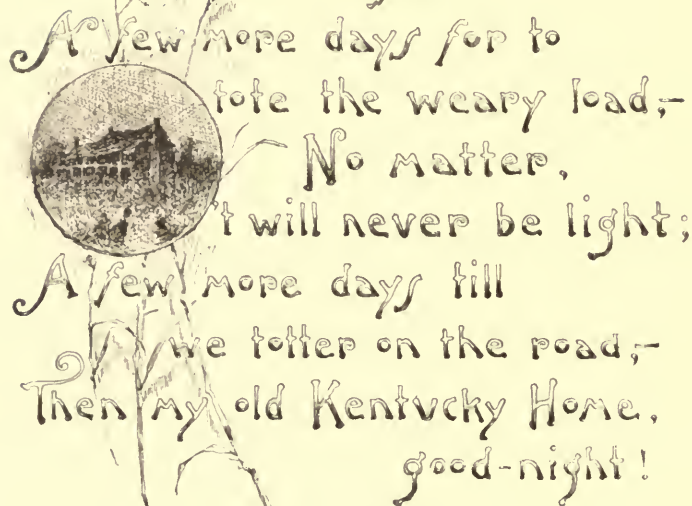 A few more days for to
tote the weary load;-
No matter,
't will never be light;
A few more days till
we totter on the road;-
Then my old Kentucky Home,
good-night!